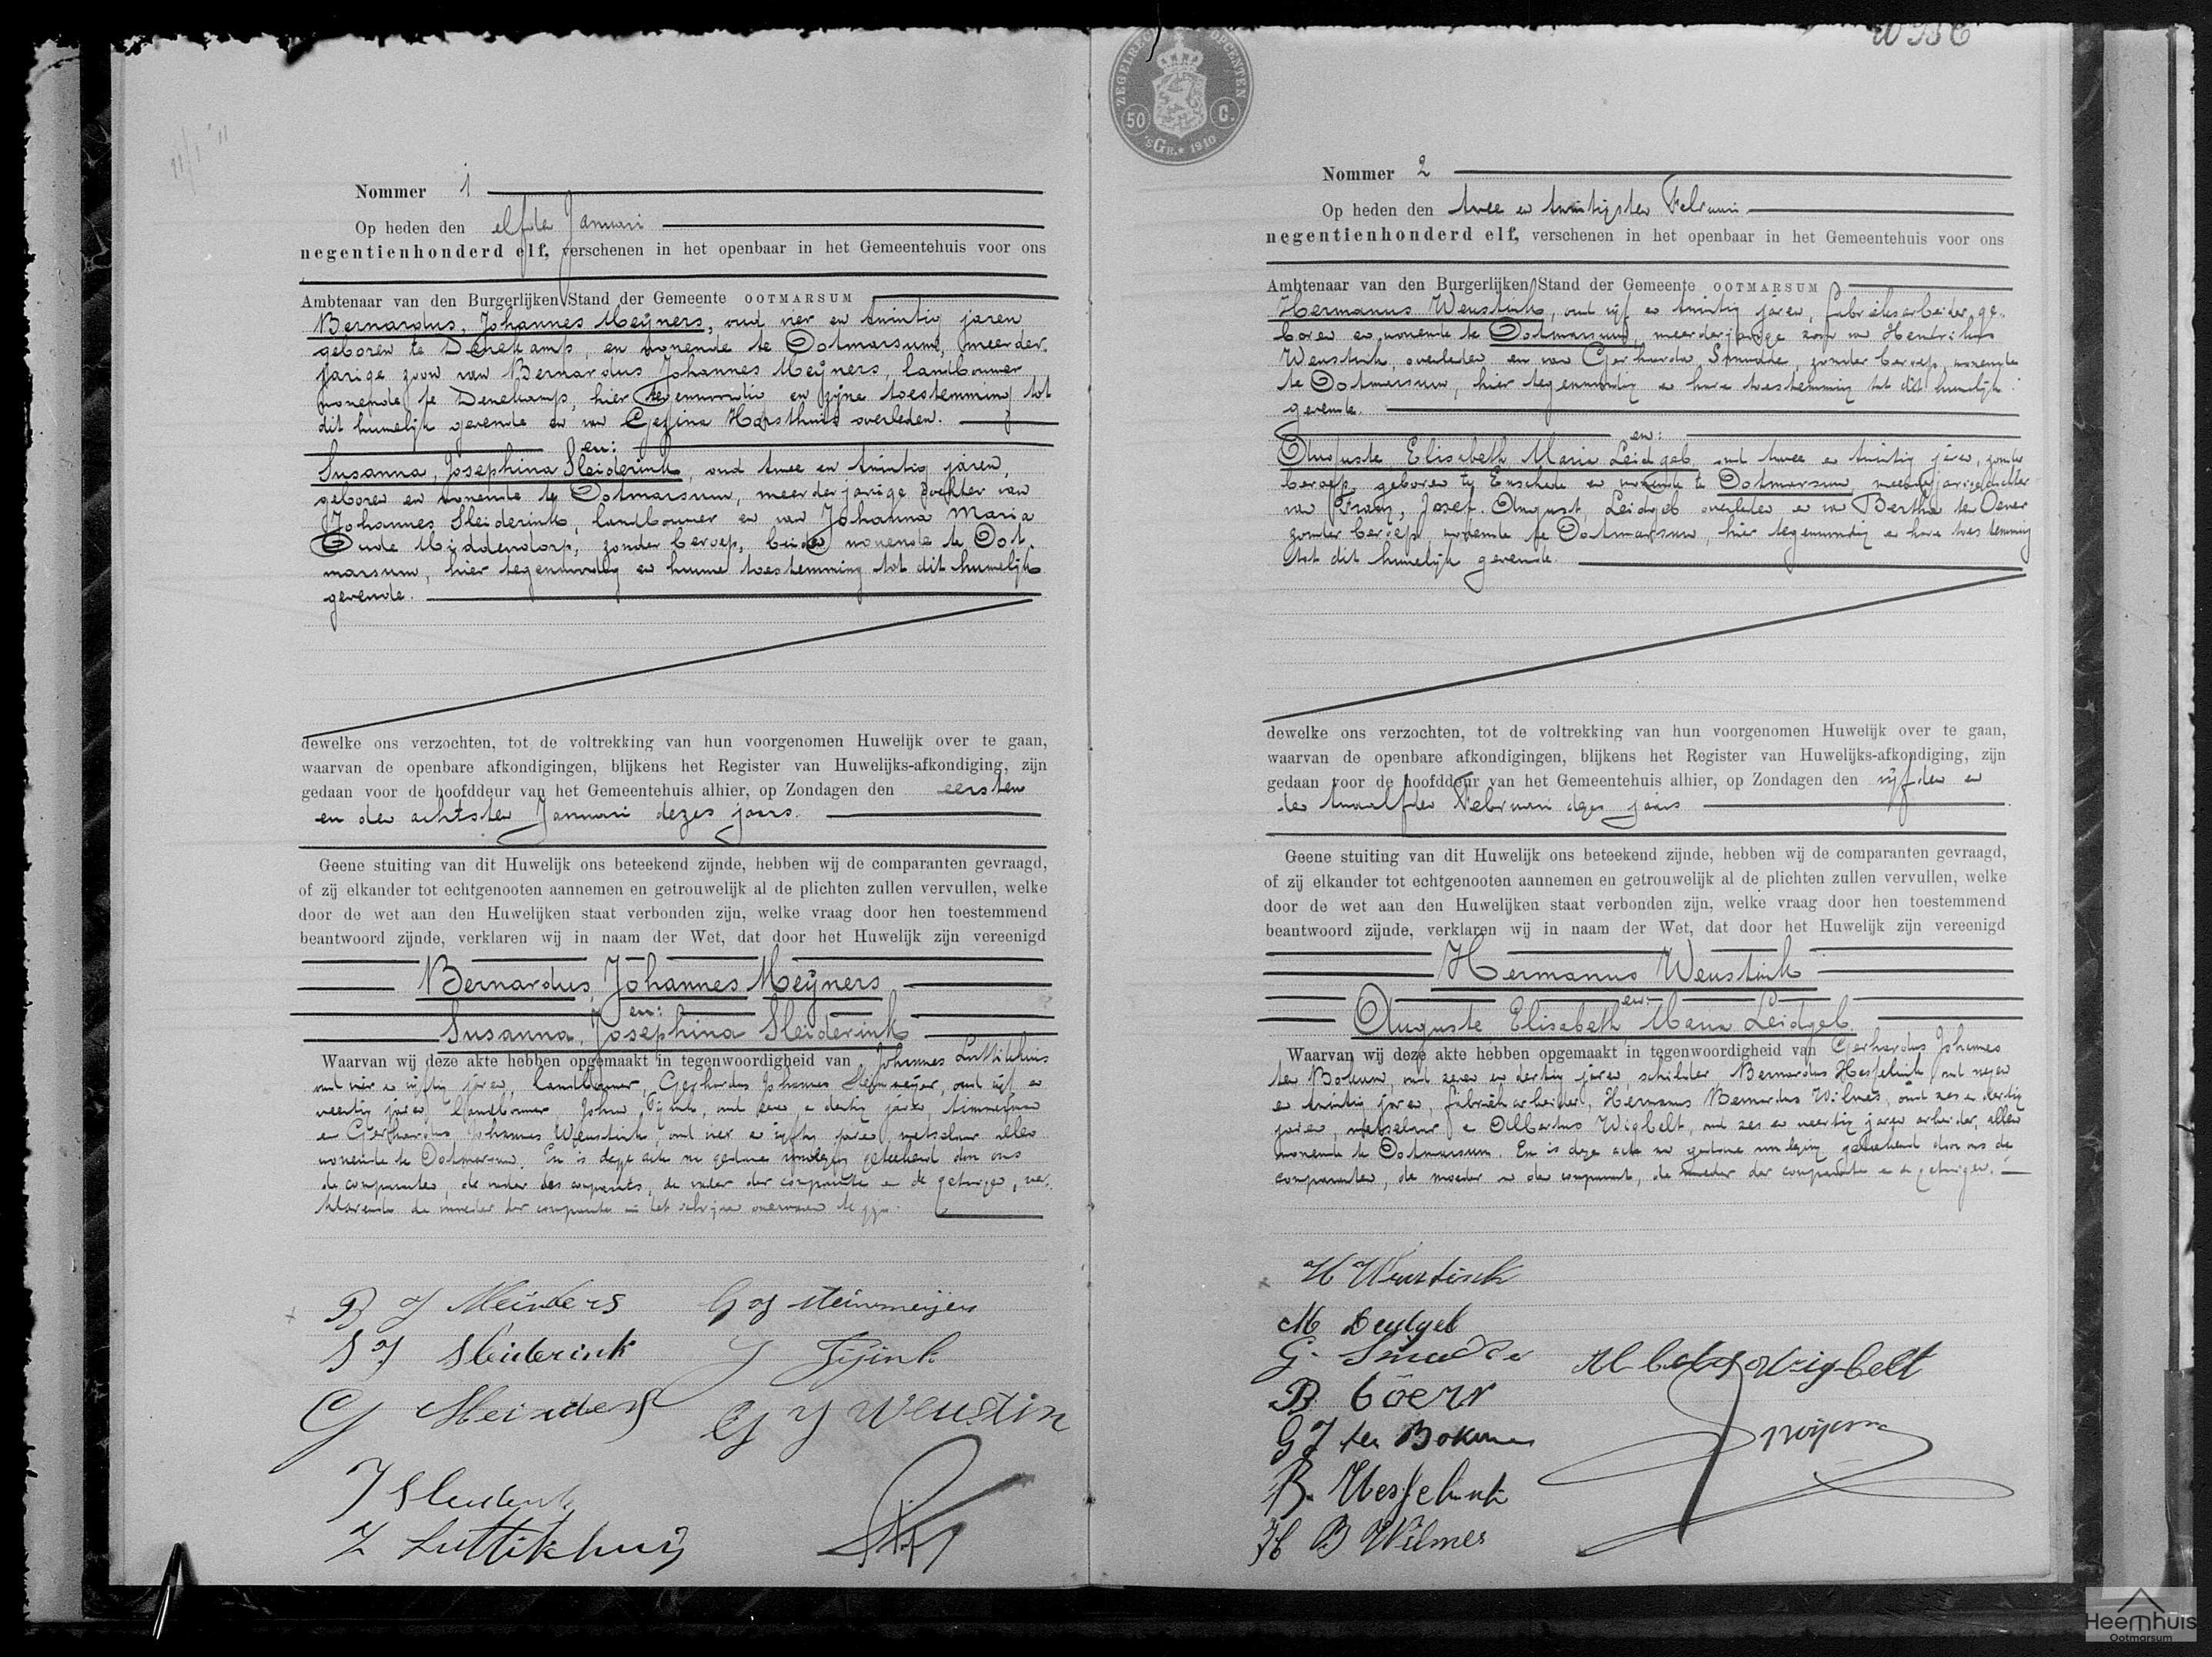 11/1 '11
Nommer 1
Op heden den elfden Januari
negentienhonderd elf, verschenen in het openbaar in het Gemeentehuis voor ons
Ambtenaar van den Burgerlijken Stand der Gemeente OOTMARSUM
Bernardus, Johannes Meijners, oud vier en twintig jaren
geboren te Denekamp, en wonende te Ootmarsum, meerder
jarige zoon van Bernardus Johannes Meijners, landbouwer
wonende te Denekamp, hier tegenwoordig en zijne toestemming tot
dit huwelijk gevende en van Gezina Horsthuis overleden.
en:
Susanna, Josephina Sleiderink, oud twee en twintig jaren,
geboren en wonende te Ootmarsum, meerderjarige dochter van
Johannes Sleiderink, landbouwer en van Johanna Maria
Oude Middendorp, zonder beroep, beiden wonende te Oot
marsum, hier tegenwoordig en hunne toestemming tot dit huwelijk
gevende.
dewelke ons verzochten, tot de voltrekking van hun voorgenomen Huwelijk over te gaan,
waarvan de openbare afkondigingen, blijkens het Register van Huwelijks-afkondiging, zijn
gedaan voor de hoofddeur van het Gemeentehuis alhier, op Zondagen den eersten
en den achtsten Januari dezes jaars.
Geene stuiting van dit Huwelijk ons beteekend zijnde, hebben wij de comparanten gevraagd,
of zij elkander tot echtgenooten aannemen en getrouwelijk al de plichten zullen vervullen, welke
door de wet aan den Huwelijken staat verbonden zijn, welke vraag door hen toestemmend
beantwoord zijnde, verklaren wij in naam der Wet, dat door het Huwelijk zijn vereenigd
Bernardus, Johannes Meijners
en:
Susanna, Josephina Sleiderink
Waarvan wij deze akte hebben opgemaakt in tegenwoordigheid van Johannes Luttikhuis
oud vier en vijftig jaren, landbouwer, Gerhardus Johannes Steinmeijer, oud vijf en
veertig jaren, landbouwer, Johan Tijink, oud een en dertig jaren, timmerman
en Gerhardus Johannes Weustink, oud vier en vijftig jaren, metselaar allen
wonende te Ootmarsum. En is deze acte na gedane voorlezing geteekend door ons
de comparanten, de vader des comparants, de vader der comparante en de getuigen, ver
klarende de moeder der comparante het schrijven onervaren te zijn.
B J Meinders
G J Steinmeijer
S J Sleiderink
J Tijink
G Meinders
G J Weustin
J Sleiderink
J Luttikhuis
ZEGELRECHT OPCENTEN
50 C.
'sGR. 1910
Nommer 2
Op heden den twee en twintigsten Februari
negentienhonderd elf, verschenen in het openbaar in het Gemeentehuis voor ons
Ambtenaar van den Burgerlijken Stand der Gemeente OOTMARSUM
Hermanus Weustink, oud vijf en twintig jaren, fabrieksarbeider, ge-
boren en wonende te Ootmarsum, meerderjarige zoon van Hendrikus
Weustink, overleden en van Gerharda Smudde, zonder beroep, wonende
te Ootmarsum, hier tegenwoordig en hare toestemming tot dit huwelijk
gevende.
en:
Auguste Elisabeth Maria Leidgeb, oud twee en twintig jaren, zonder
beroep, geboren te Enschede en wonende te Ootmarsum, meerderjarige dochter
van Franz, Josef, August, Leidgeb overleden en van Bertha te Oever
zonder beroep, wonende te Ootmarsum, hier tegenwoordig en hare toestemming
tot dit huwelijk gevende.
dewelke ons verzochten, tot de voltrekking van hun voorgenomen Huwelijk over te gaan,
waarvan de openbare afkondigingen, blijkens het Register van Huwelijks-afkondiging, zijn
gedaan voor de hoofddeur van het Gemeentehuis alhier, op Zondagen den vijfden en
den twaalfden Februari dezes jaars
Geene stuiting van dit Huwelijk ons beteekend zijnde, hebben wij de comparanten gevraagd,
of zij elkander tot echtgenooten aannemen en getrouwelijk al de plichten zullen vervullen, welke
door de wet aan den Huwelijken staat verbonden zijn, welke vraag door hen toestemmend
beantwoord zijnde, verklaren wij in naam der Wet, dat door het Huwelijk zijn vereenigd
Hermanus Weustink
en:
Auguste Elisabeth Maria Leidgeb.
Waarvan wij deze akte hebben opgemaakt in tegenwoordigheid van Gerhardus Johannes
ten Bokum, oud zeven en dertig jaren, schilder, Bernardus Hesselink, oud negen
en twintig jaren, fabriekarbeider, Hermanus Bernardus Wilmes, oud zes en dertig
jaren, metselaar en Albertus Wigbelt, oud zes en veertig jaren arbeider, allen
wonende te Ootmarsum. En is deze acte na gedane voorlezing geteekend door ons de
comparanten, de moeder van den comparant, de moeder der comparante en de getuigen.
H Weustink
M Leidgeb
G. Smudde
Albertus Wigbelt
B. Oever
G J ten Bokum
B. Hesselink
H B Wilmes
Heemhuis
Ootmarsum